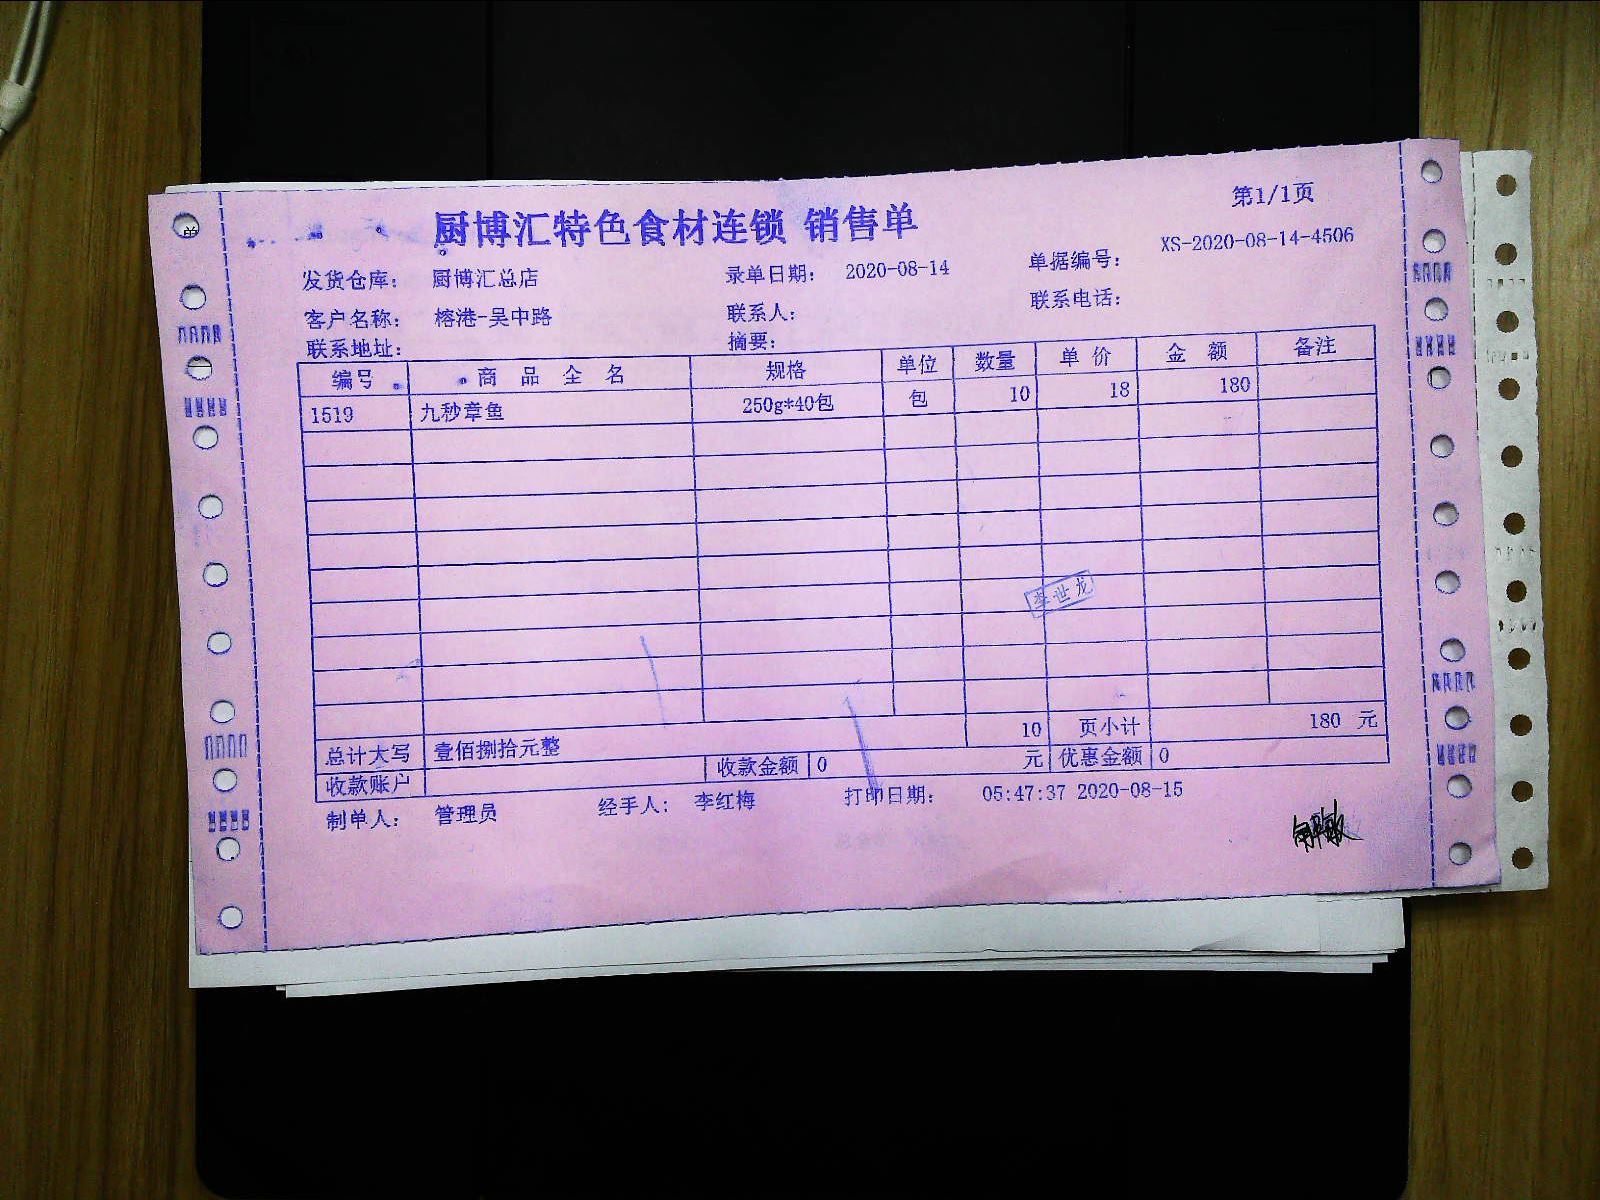 厨博汇特色食材连锁 销售单
第1/1页
发货仓库: 厨博汇总店 录单日期: 2020-08-14 单据编号: XS-2020-08-14-4506
客户名称: 榕港-吴中路 联系人: 联系电话:
联系地址: 摘要:
编号 商品全名 规格 单位 数量 单价 金额 备注
1519 九秒章鱼 250g*40包 包 10 18 180
李世龙
10 页小计 180 元
总计大写 壹佰捌拾元整
收款账户 收款金额 0 元 优惠金额 0
制单人: 管理员 经手人: 李红梅 打印日期: 05:47:37 2020-08-15
单